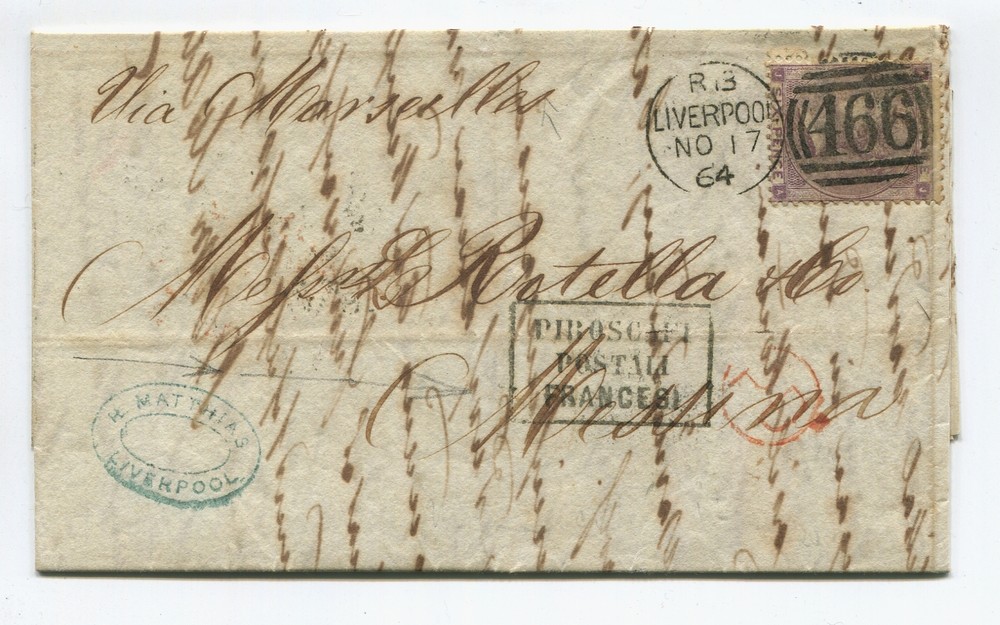 Via Marseilles
R B
LIVERPOOL
NO 17
64
466
SIX PENCE
Mess Rotella & Co
PIROSCAFI
POSTALI
FRANCESI
Messina
H. MATTHIAS
LIVERPOOL